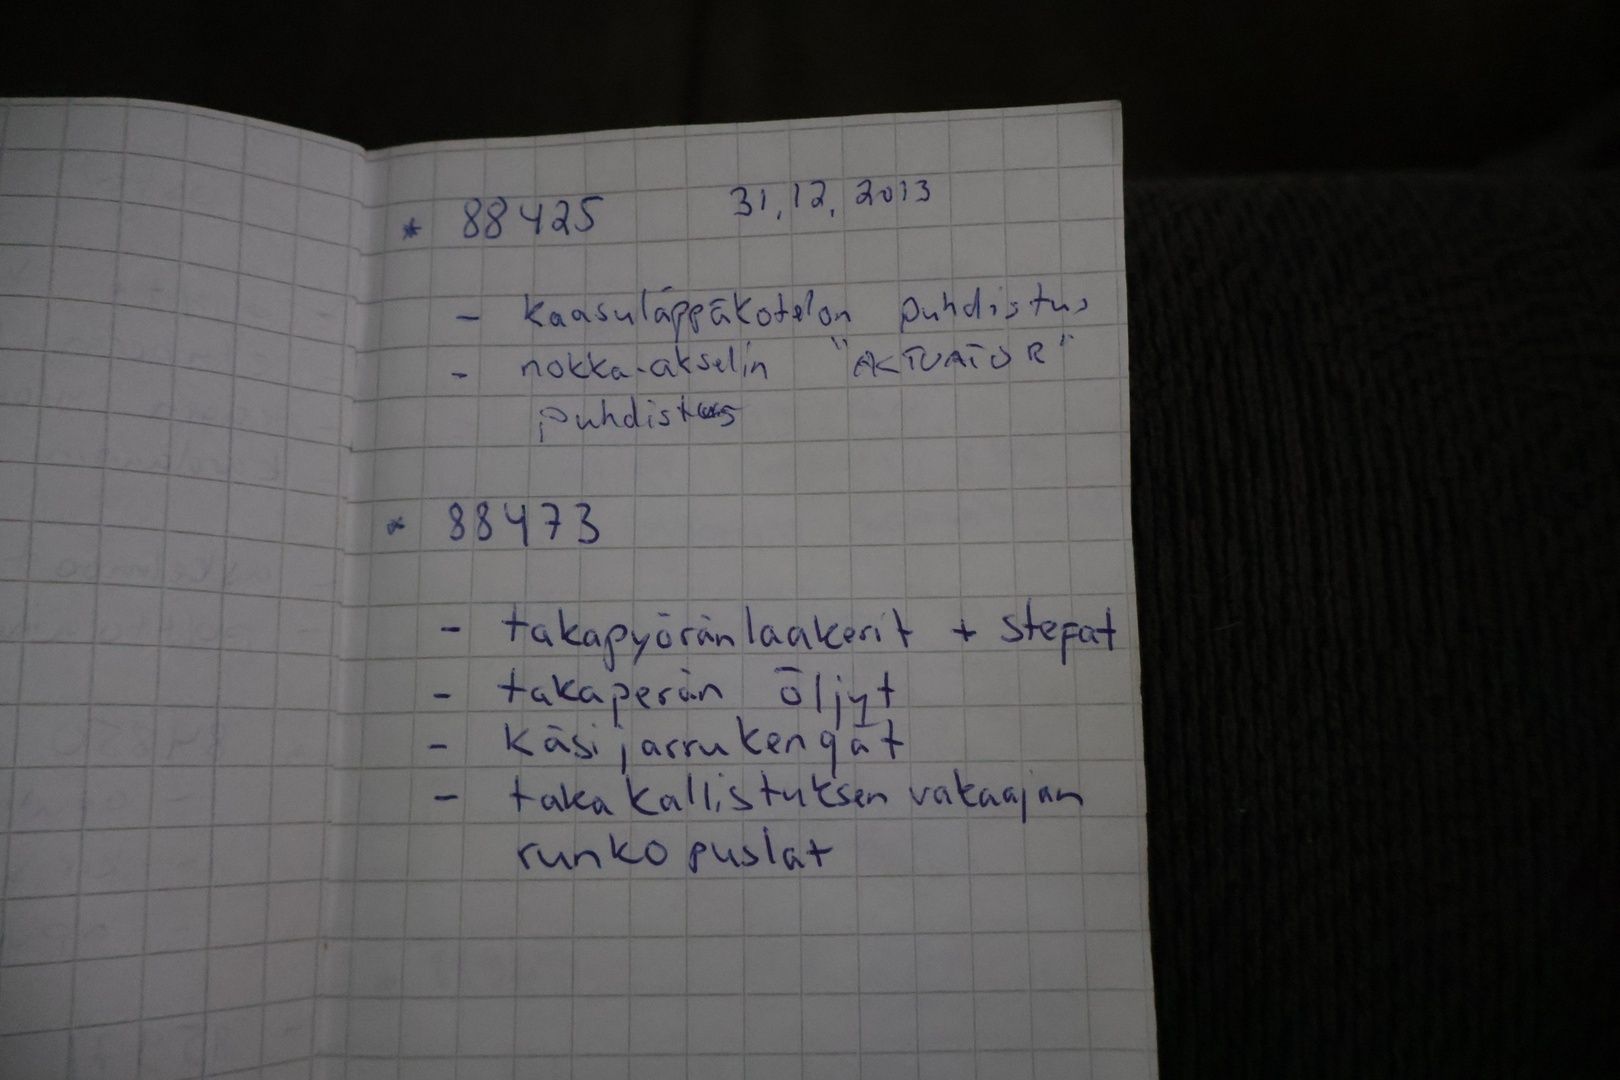 * 88425 31.12.2013
- kaasuläppäkotelon puhdistus
- nokka-akselin "AKTUATOR"
puhdistus
* 88473
- takapyöränlaakerit + stefat
- takaperän öljyt
- käsijarrukengät
- takakallistuksen vakaajan
runkopuslat